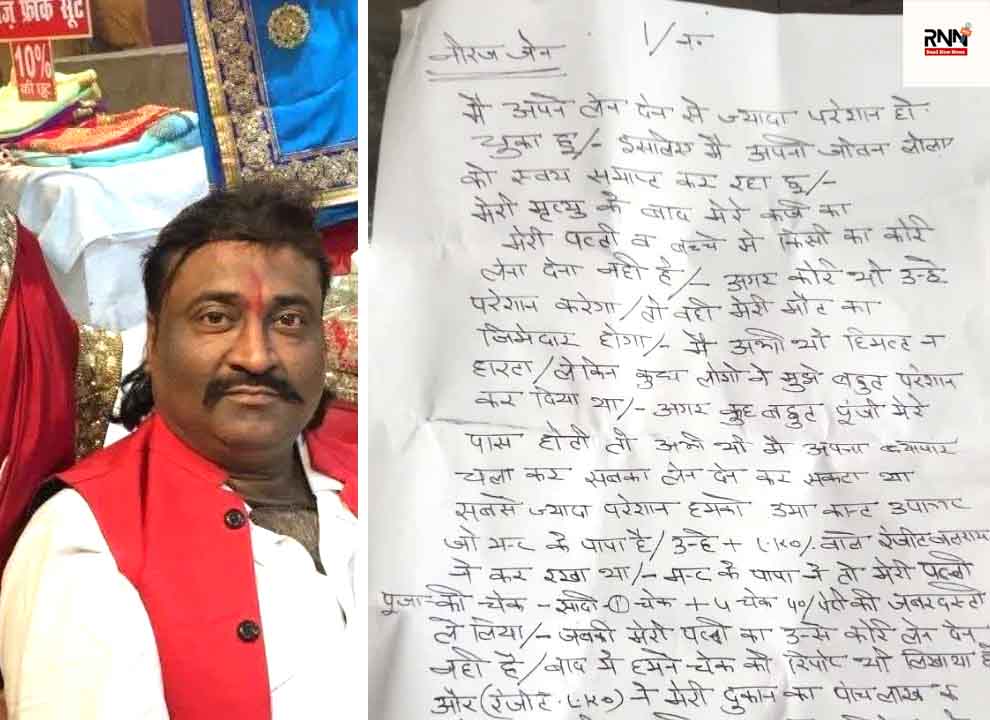 ज़ फ्रॉक सूट
10%
की छूट
RNN
नीरज जैन
मै अपने लेन देन से ज्यादा परेशान हो
चुका हु/- इसलिए मै अपनी जीवन लीला
को स्वयं समाप्त कर रहा हु/-
मेरी मृत्यु के बाद मेरे कर्ज का
मेरी पत्नी व बच्चे से किसी का कोई
लेना देना नही है/- अगर कोई भी उन्हे
परेशान करेगा/तो वही मेरी मौत का
जिमेदार होगा/- मै अभी भी हिम्मत न
हारता/लेकिन कुछ लोगो ने मुझे बहुत परेशान
कर दिया था/- अगर कुछ बहुत पूंजी मेरे
पास होती तो अभी भी मै अपना व्यापार
चला कर सबका लेन देन कर सकता था
सबसे ज्यादा परेशान हमको उमा कान्त
जो के पापा है/उन्हे + वाले रंजीत
ने कर रखा था/- के पापा ने तो मेरी पत्नी
पूजा की चेक - सादी ① चेक + ५ चेक की जबरदस्ती
ले लिया/- जबकी मेरी पत्नी का उनसे कोई लेन देन
नही है/बाद मे हमने चेक की रिपोट भी लिखाया है
और (रंजीत ) ने मेरी दुकान का पांच लाख